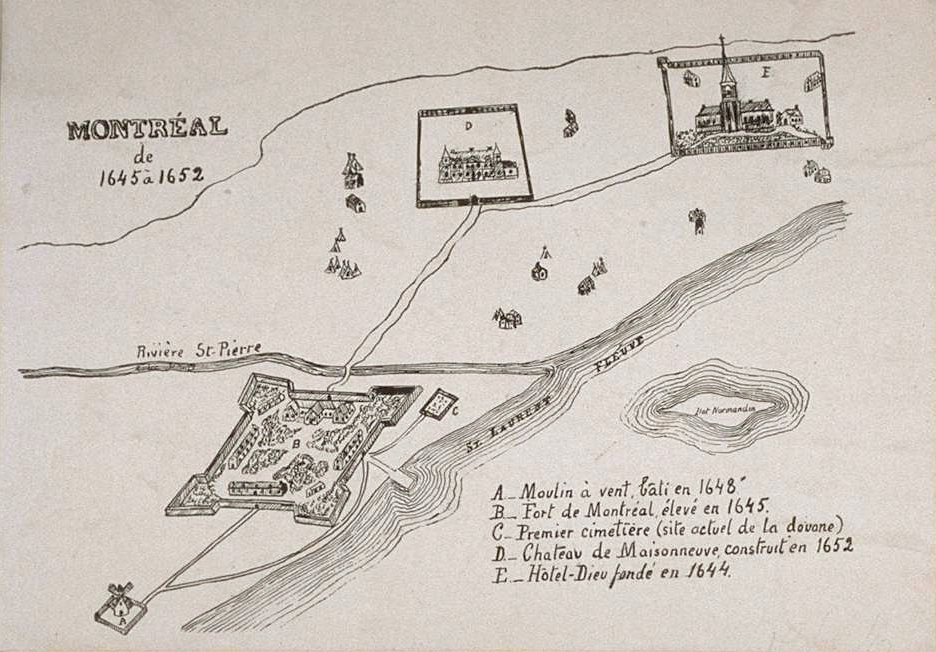 MONTRÉAL
de
1645 à 1652
D
E
Rivière St-Pierre
B
C
A
St. LAURENT FLEUVE
Ilot Normandin
A_ Moulin à vent, bâti en 1648
B_ Fort de Montréal, élevé en 1645.
C_ Premier cimetière (site actuel de la douane)
D_ Chateau de Maisonneuve, construit en 1652
E_ Hôtel-Dieu fondé en 1644.